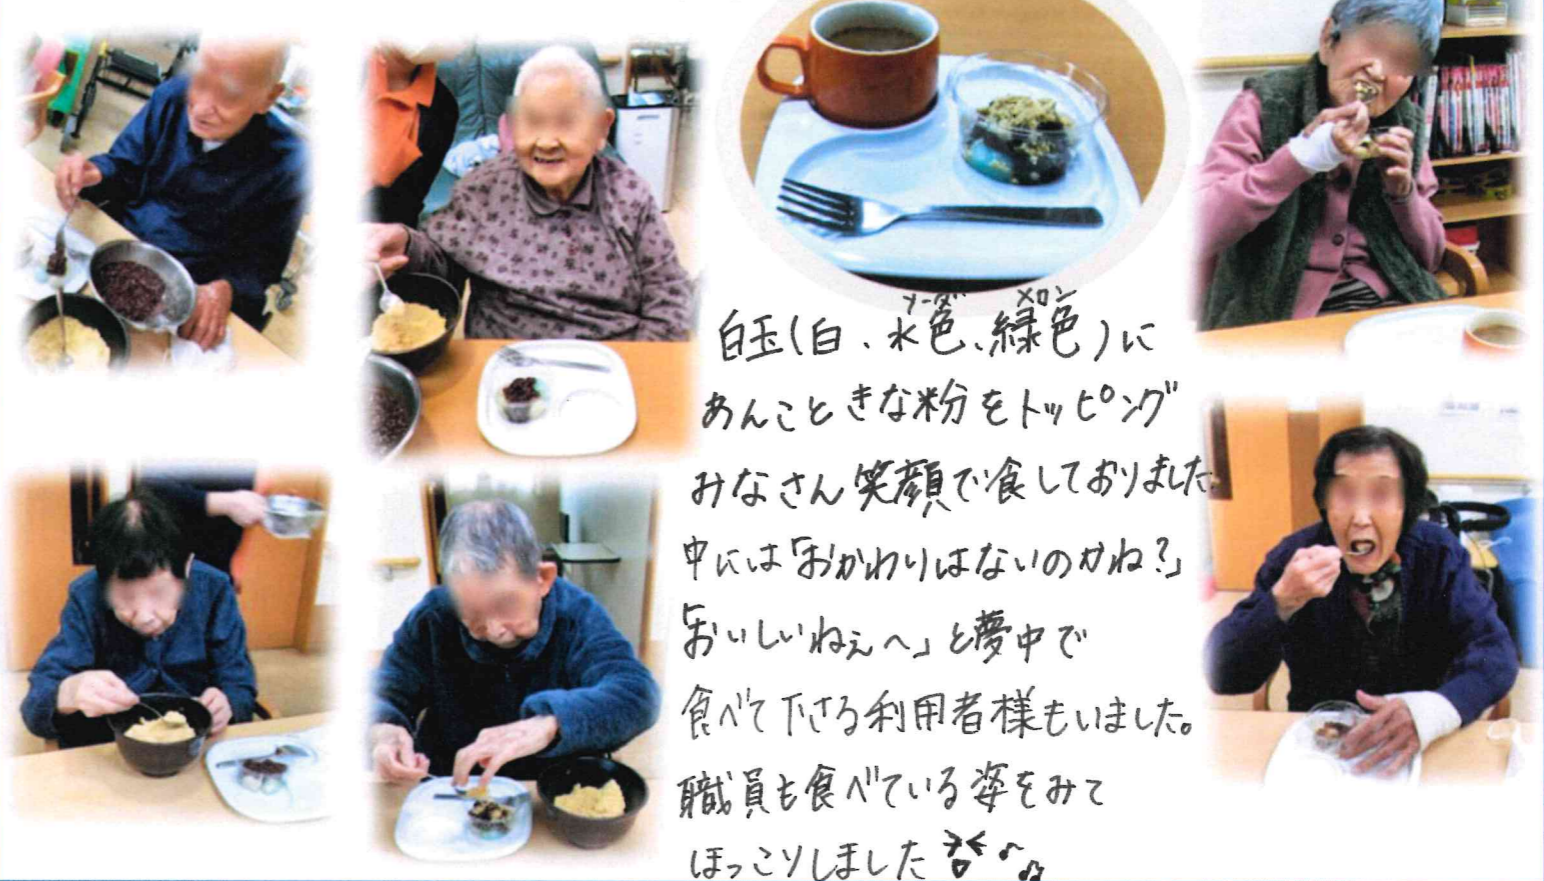 白玉(白、水色、緑色)に
ソーダ メロン
あんこときな粉をトッピング
みなさん笑顔で食しておりました。
中には「おかわりはないのかね?」
「おいしいねぇへ」と夢中で
食べて下さる利用者様もいました。
職員も食べている姿をみて
ほっこりしました